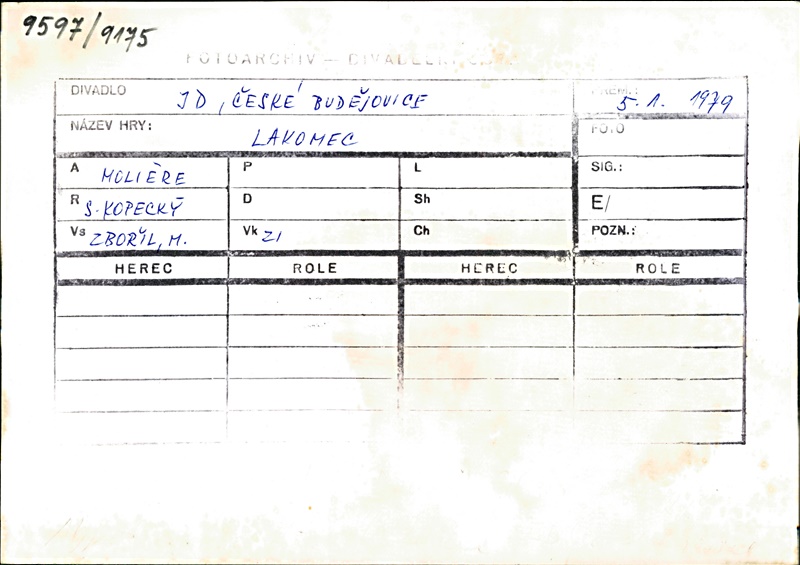 9597/9175
FOTOARCHIV – DIVADELNÍ
DIVADLO JD, ČESKÉ BUDĚJOVICE PREM.: 5. 1. 1979
NÁZEV HRY: LAKOMEC FOTO
A MOLIÈRE P L SIG.:
R S. KOPECKÝ D Sh E/
Vs ZBOŘIL, M. Vk ZI Ch POZN.:
HEREC ROLE HEREC ROLE